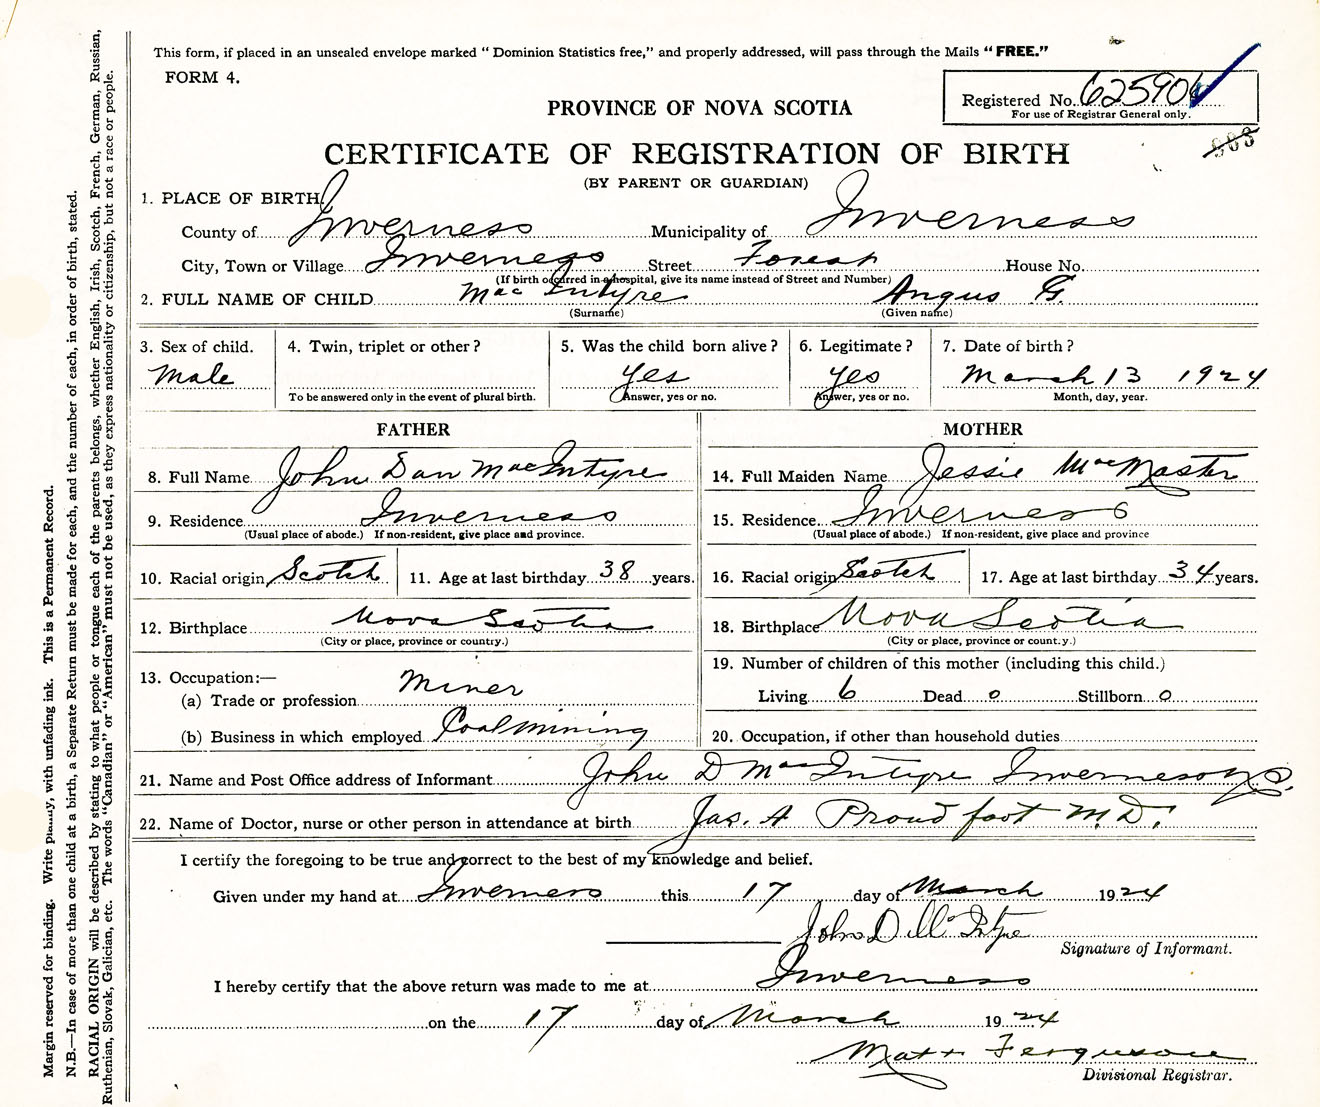 This form, if placed in an unsealed envelope marked "Dominion Statistics free," and properly addressed, will pass through the Mails "FREE."
FORM 4.
Registered No. 625906
For use of Registrar General only.
PROVINCE OF NOVA SCOTIA
908
CERTIFICATE OF REGISTRATION OF BIRTH
(BY PARENT OR GUARDIAN)
1. PLACE OF BIRTH.
County of Inverness Municipality of Inverness
City, Town or Village Inverness Street Forest House No.
(If birth occurred in a hospital, give its name instead of Street and Number)
2. FULL NAME OF CHILD MacIntyre Angus G.
(Surname) (Given name)
3. Sex of child. 4. Twin, triplet or other? 5. Was the child born alive? 6. Legitimate? 7. Date of birth?
Male yes yes March 13 1924
To be answered only in the event of plural birth. Answer, yes or no. Answer, yes or no. Month, day, year.
FATHER
8. Full Name John Dan MacIntyre
9. Residence Inverness
(Usual place of abode.) If non-resident, give place and province.
10. Racial origin Scotch 11. Age at last birthday 38 years.
12. Birthplace Nova Scotia
(City or place, province or country.)
13. Occupation:—
(a) Trade or profession Miner
(b) Business in which employed Coal mining
MOTHER
14. Full Maiden Name Jessie MacMaster
15. Residence Inverness
(Usual place of abode.) If non-resident, give place and province
16. Racial origin Scotch 17. Age at last birthday 34 years.
18. Birthplace Nova Scotia
(City or place, province or count.y.)
19. Number of children of this mother (including this child.)
Living 6 Dead 0 Stillborn 0
20. Occupation, if other than household duties
21. Name and Post Office address of Informant John D MacIntyre Inverness NS.
22. Name of Doctor, nurse or other person in attendance at birth Jas. A Proudfoot M.D.
I certify the foregoing to be true and correct to the best of my knowledge and belief.
Given under my hand at Inverness this 17 day of March 1924
John D McIntyre
Signature of Informant.
I hereby certify that the above return was made to me at Inverness
on the 17 day of March 1924
Matt Ferguson
Divisional Registrar.
Margin reserved for binding. Write plainly, with unfading ink. This is a Permanent Record.
N.B.—In case of more than one child at a birth, a Separate Return must be made for each, and the number of each, in order of birth, stated.
RACIAL ORIGIN will be described by stating to what people or tongue each of the parents belongs, whether English, Irish, Scotch, French, German, Russian,
Ruthenian, Slovak, Galician, etc. The words "Canadian" or "American" must not be used, as they express nationality or citizenship, but not a race or people.